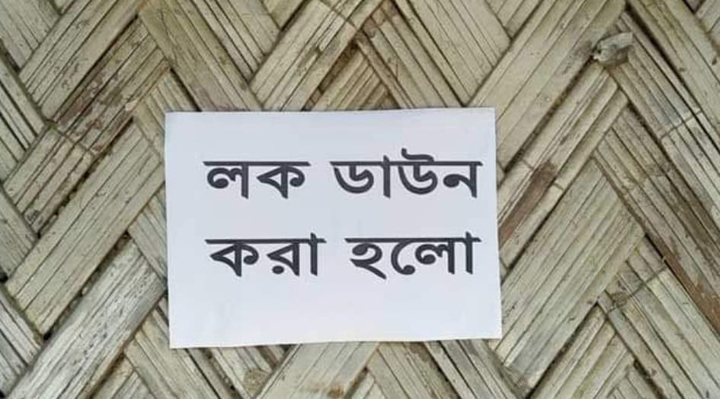 লক ডাউন
করা হলো